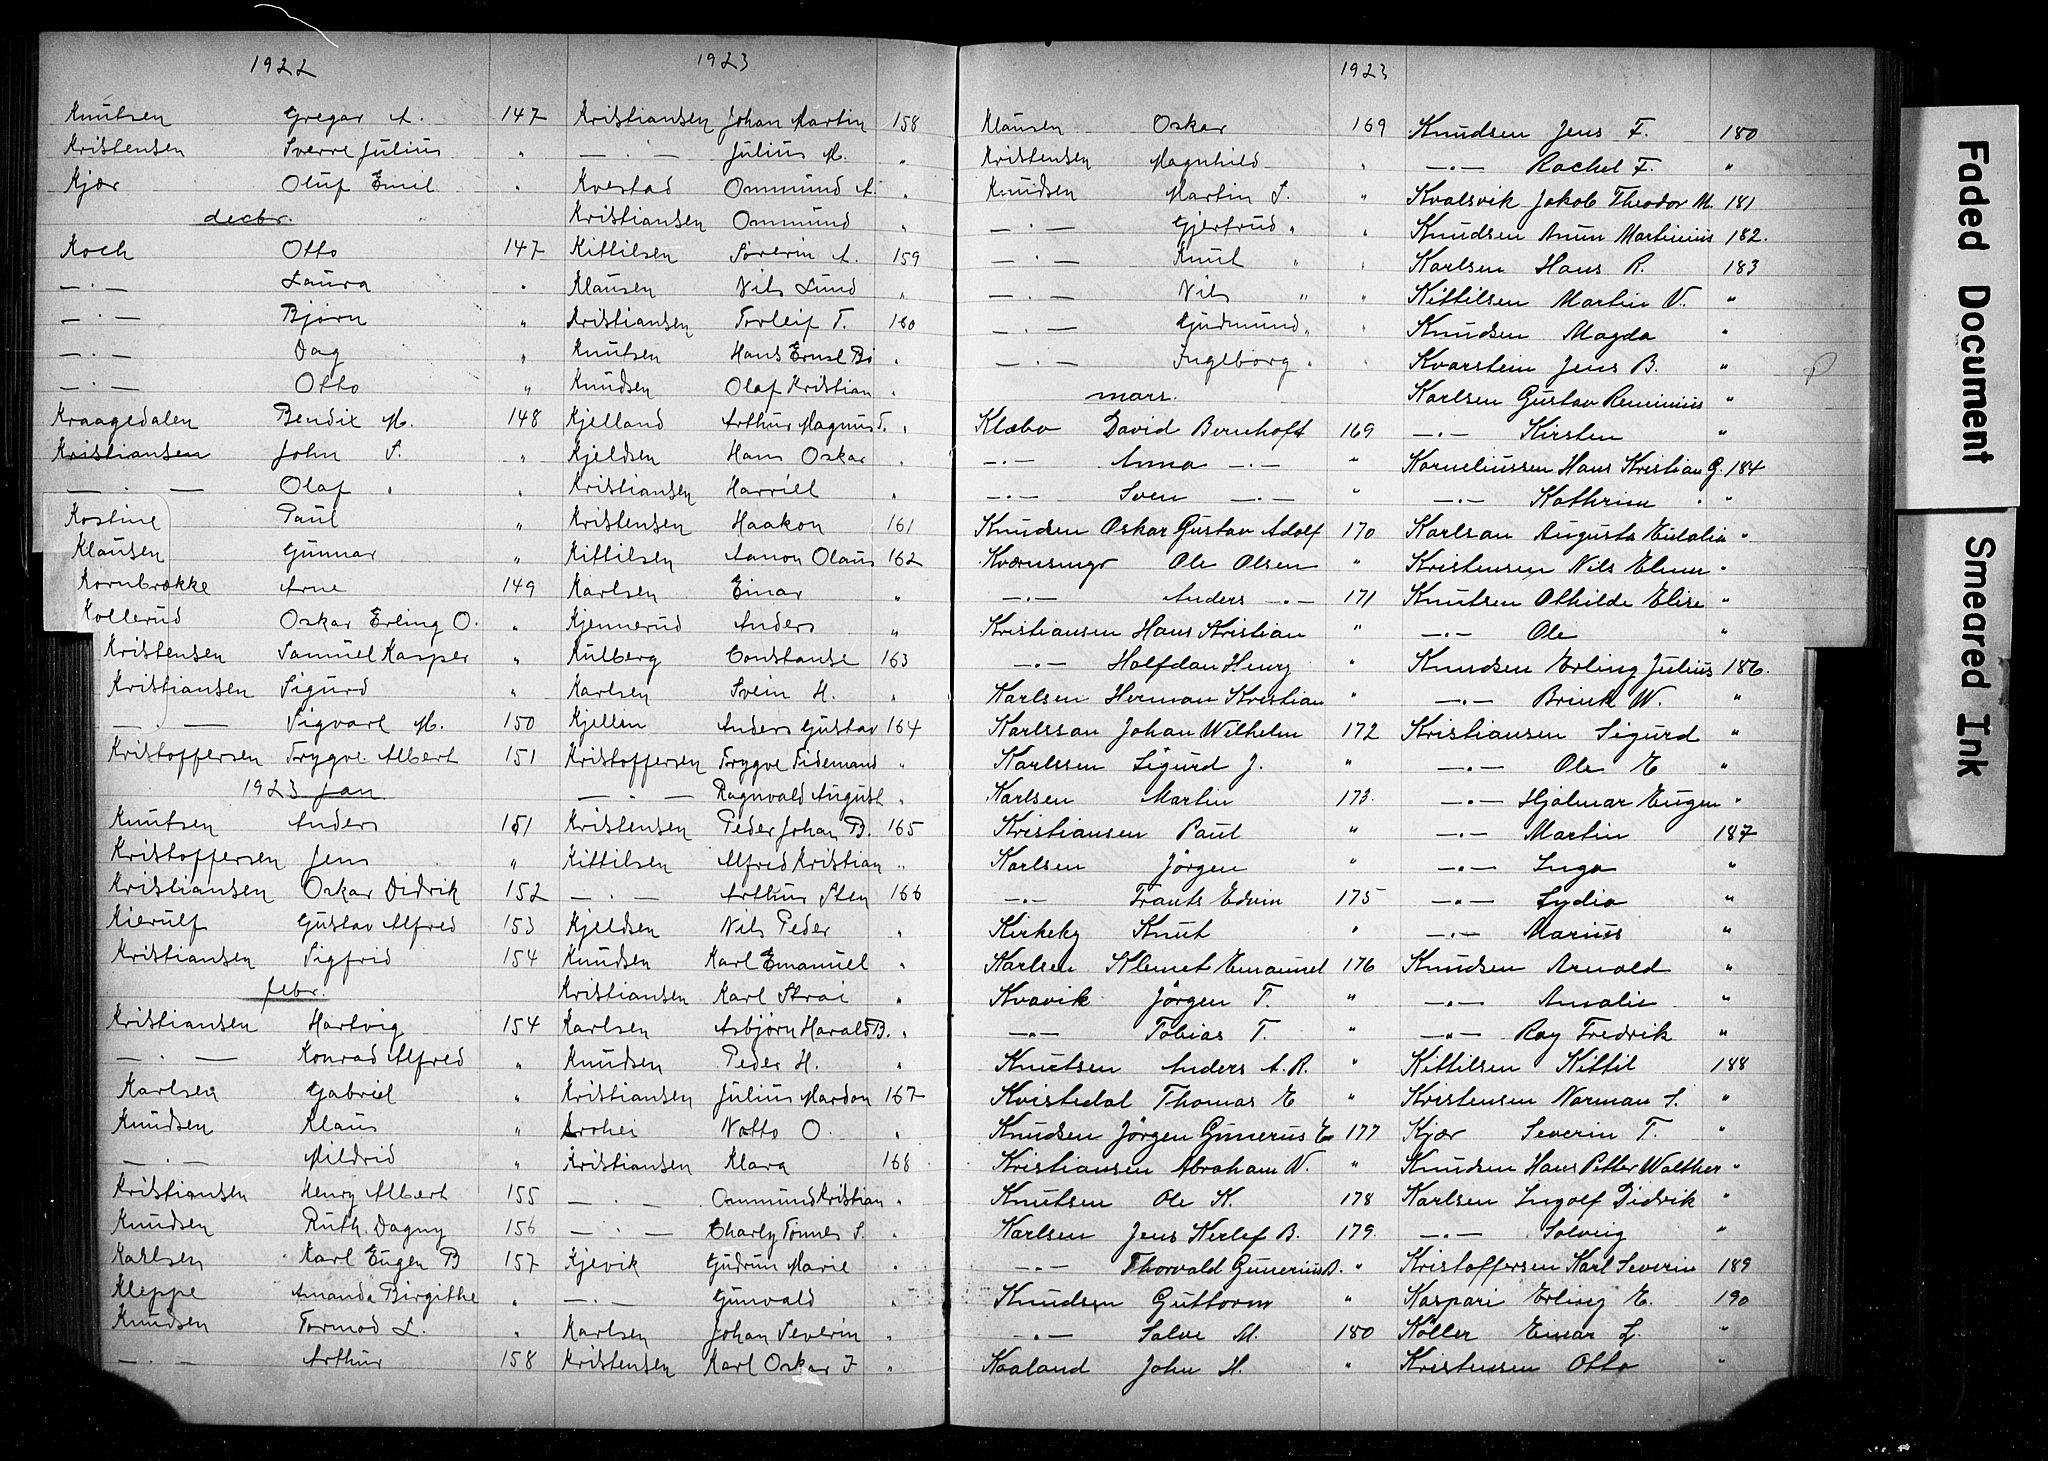 1922
Knutsen Gregar A. 147
Kristensen Sverre Julius "
Kjær Oluf Emil "
decbr.
Koch Otto 147
—·— Laura "
—·— Bjørn "
—·— Dag "
—·— Otto "
Kraagedalen Bendix M. 148
Kristiansen John S. "
—·— Olaf " "
Kostine Paul "
Klausen Gunnar "
Kornbrække Arne 149
Kollerud Oskar Erling O. "
Kristensen Samuel Kasper "
Kristiansen Sigurd "
—·— Sigvart M. 150
Kristoffersen Trygve Albert 151
1923 Jan
Knutsen Anders 151
Kristoffersen Jens "
Kristiansen Oskar Didrik 152
Kierulf Gustav Alfred 153
Kristiansen Sigfrid 154
febr.
Kristiansen Hartvig 154
—·— Konrad Alfred "
Karlsen Gabriel "
Knudsen Klaus "
—·— Mildrid "
Kristiansen Henry Albert 155
Knudsen Ruth Dagny 156
Karlsen Karl Eugen B 157
Kleppe Amanda Birgithe "
Knudsen Tormod L. "
—·— Arthur 158
1923
Kristiansen Johan Martin 158
—·— Julius M. "
Kvestad Ommund A. "
Kristiansen Ommund "
Kittilsen Søverin A. 159
Klausen Nils Lund "
Kristiansen Torleif T. 160
Knutsen Hans Ernst Bj "
Knudsen Olaf Kristian "
Kjelland Arthur Magnus T. "
Kjeldsen Hans Oskar "
Kristiansen Harriet "
Kristensen Haakon 161
Kittilsen Aanon Olaus 162
Karlsen Einar "
Kjennerud Anders "
Kulberg Constanse 163
Karlsen Svein H. "
Kjellin Anders Gustav 164
Kristoffersen Trygve Tidemand "
—·— Ragnvald August "
Kristensen Peder Johan B. 165
Kittilsen Alfred Kristian "
—·— Arthur Sten 166
Kjeldsen Nils Peder "
Knudsen Karl Emanuel "
Kristiansen Karl Skrai "
Karlsen Asbjørn Harald B. "
Knudsen Peder H. "
Kristiansen Julius Mardon 167
Krohei Notto O. "
Kristiansen Klara 168
—·— Ommund Kristian "
—·— Charly Tønnes S. "
Kjevik Gudrun Marie "
—·— Gunvald "
Karlsen Johan Severin "
Kristensen Karl Oskar J "
1923
Klausen Oskar 169
Kristensen Magnhild "
Knudsen Martin S. "
—·— Gjertrud " "
—·— Knut " "
—·— Nils " "
—·— Gudmund " "
—·— Ingeborg " "
mars.
Klæbo David Bernhoft 169
—·— Anna —·— "
—·— Sven —·— "
Knudsen Oskar Gustav Adolf 170
Kværnsmyr Ole Olsen "
—·— Anders —·— 171
Kristiansen Hans Kristian "
—·— Halfdan Henry "
Karlsen Herman Kristian "
Karlsson Johan Wilhelm 172
Karlssen Sigurd J. "
Karlsen Martin 173
Kristiansen Paul "
Karlsen Jörgen "
—·— Frants Edvin 175
Kirkeby Knut "
Karlsen Klemet Emanuel 176
Kvavik Jörgen T. "
—·— Tobias T. "
Knutsen Anders A. R. "
Kvistedal Thomas E "
Knudsen Jörgen Gunerus E 177
Kristiansen Abraham N. "
Knutsen Ole K. 178
Karlsen Jens Kerlef B. 179
—·— Thorvald Gunerius B. "
Knudsen Guttorm "
—·— Salve M. 180
Kaaland John H. "
Knudsen Jens F. 180
—·— Rachel F. "
Kvalsvik Jakob Theodor M. 181
Knudsen Anun Martinius 182.
Karlsen Hans R. 183
Kittilsen Martin N. "
Knudsen Magda "
Kvarstein Jens B. "
Karlsen Gustav Reminius "
—·— Kirsten "
Korneliussen Hans Kristian G. 184
—·— Kathrine " "
Karlsen Augusta Eidalia "
Kristensen Nils Elmer "
Knutsen Othilde Elise "
—·— Ole "
Knudsen Erling Julius 186.
—·— Brink W. "
Kristiansen Sigurd "
—·— Ole E "
—·— Hjalmar Eugen "
—·— Martin 187
—·— Inga "
—·— Lydia "
—·— Marius "
Knudsen Arnold "
—·— Amalie "
—·— Roy Fredrik "
Kittilsen Kittil 188
Kristensen Norman S. "
Kjær Severin T. "
Knudsen Hans Petter Walther "
Karlsen Ingolf Didrik "
—·— Solveig "
Kristoffersen Karl Severin 189
Kaspari Erling E. 190
Köller Einar L. "
Kristensen Otto "
Faded Document
Smeared Ink